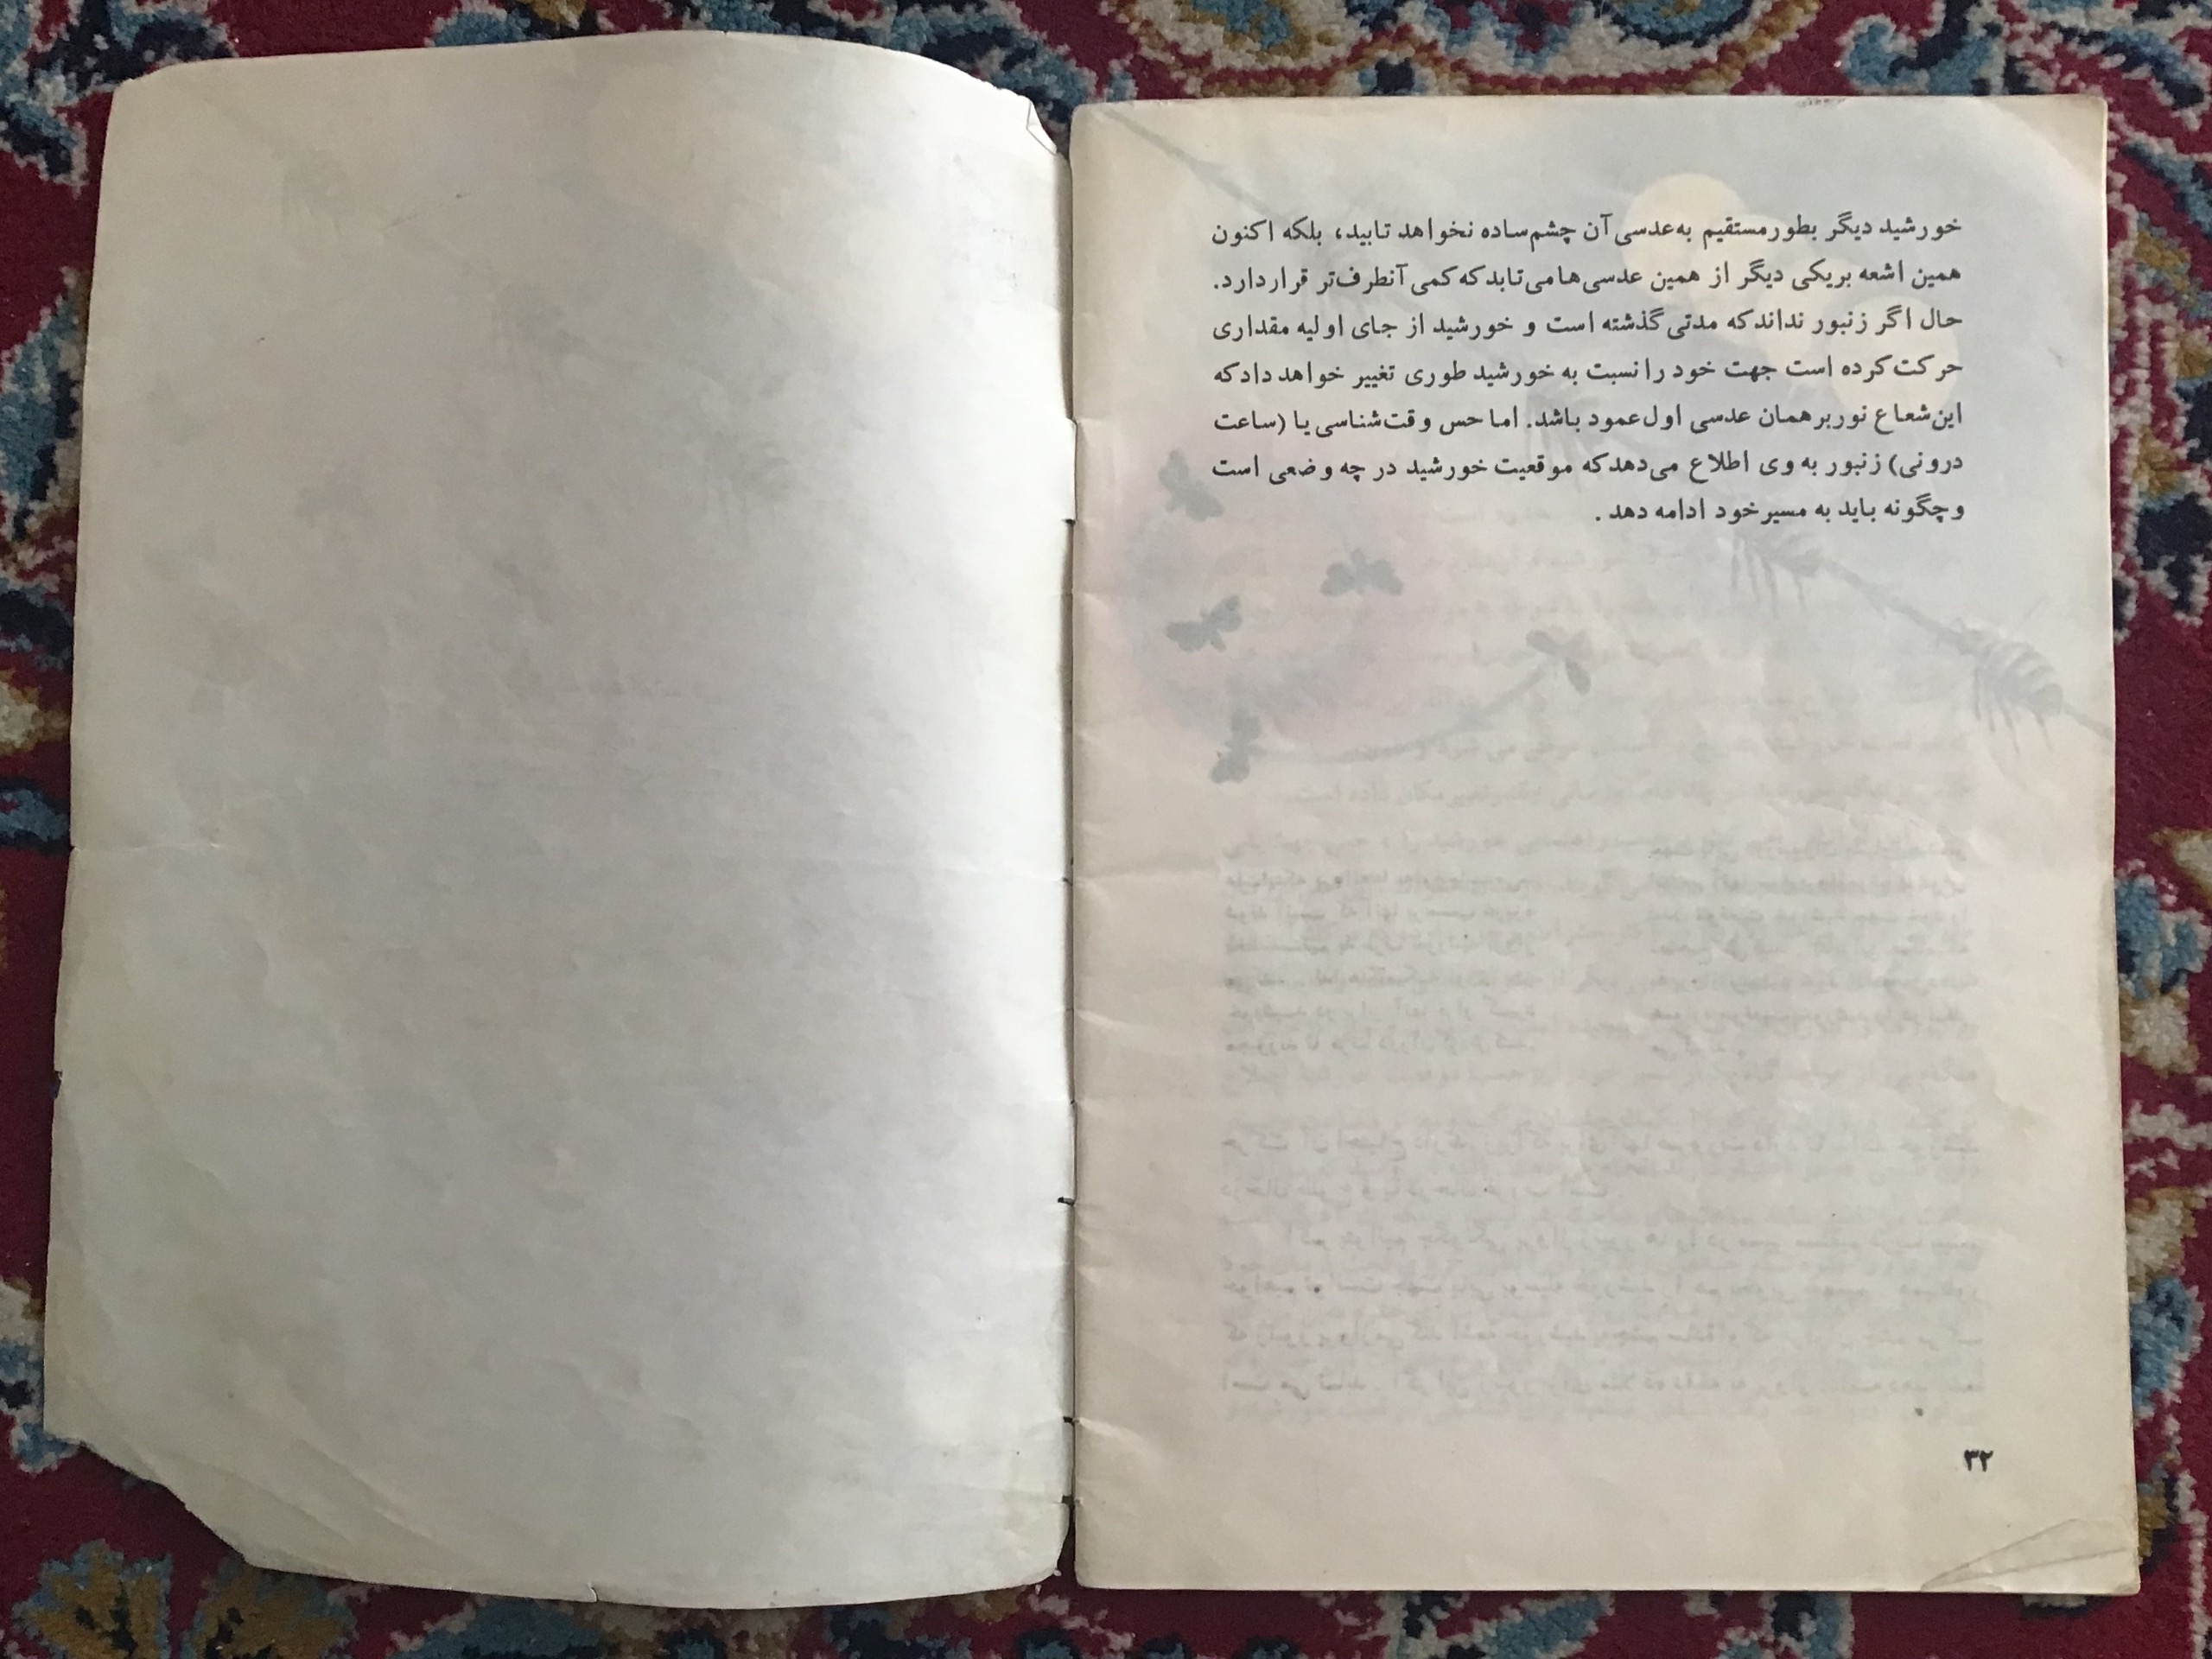 خورشید دیگر بطور مستقیم به عدسی آن چشم ساده نخواهد تابید، بلکه اکنون
همین اشعه بریکی دیگر از همین عدسی‌ها می‌تابد که کمی آنطرف‌تر قرار دارد.
حال اگر زنبور نداند که مدتی گذشته است و خورشید از جای اولیه مقداری
حرکت کرده است جهت خود را نسبت به خورشید طوری تغییر خواهد داد که
این شعاع نور بر همان عدسی اول عمود باشد. اما حس وقت‌شناسی یا (ساعت
درونی) زنبور به وی اطلاع می‌دهد که موقعیت خورشید در چه وضعی است
و چگونه باید به مسیر خود ادامه دهد.
۳۲